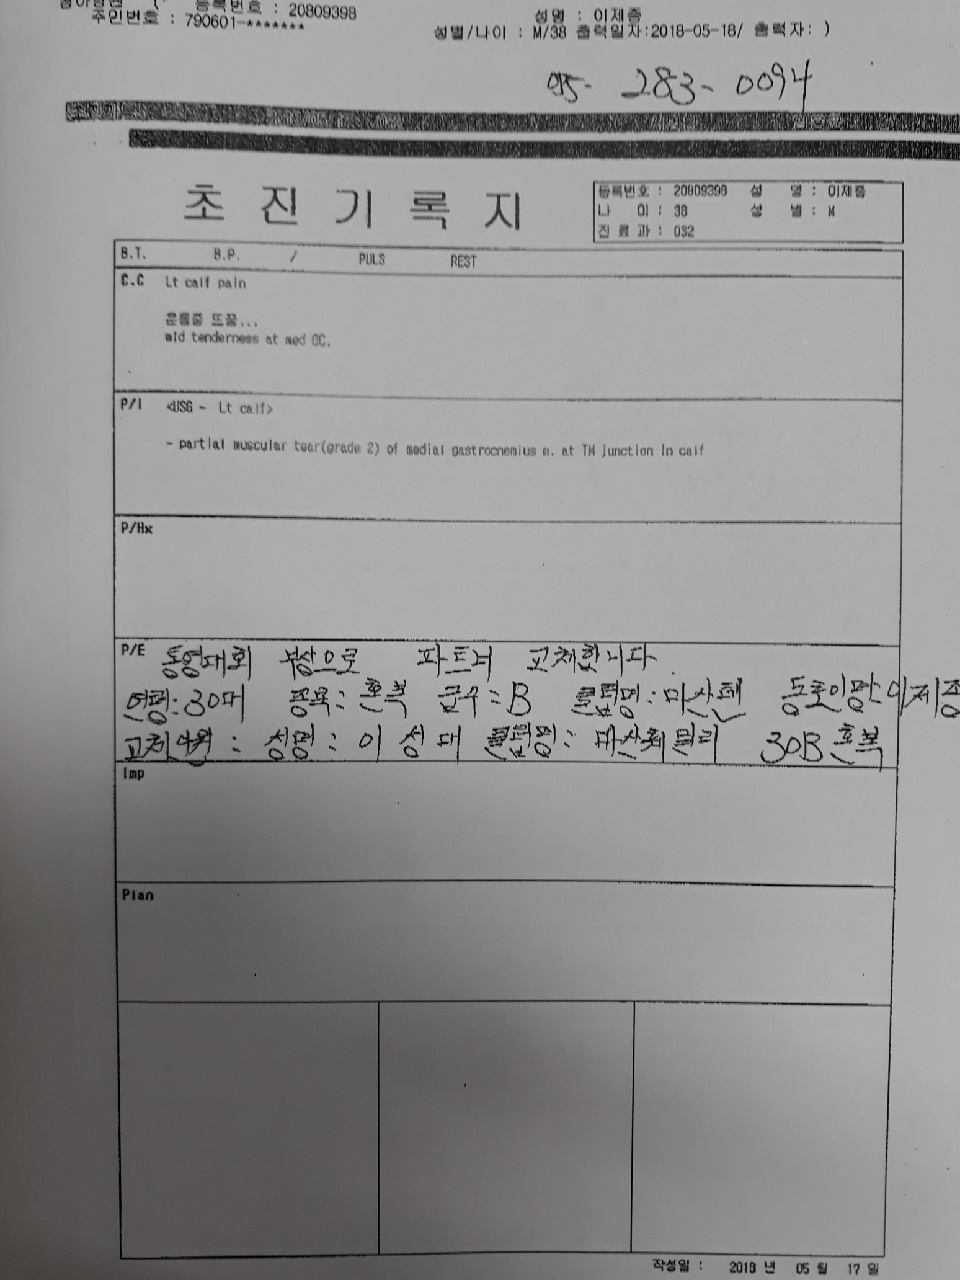 등록번호 : 20809398
주민번호 : 790601-*******
성명 : 이제종
성별/나이 : M/38 출력일자:2018-05-18/ 출력자: )
055- 283- 0094
초 진 기 록 지
등록번호 : 20809398 성 명 : 이제종
나 이 : 38 성 별 : M
진 료 과 : OS2
B.T. B.P. / PULS REST
C.C Lt calf pain
운동중 뜨끔...
mld tenderness at med GC.
P/I <USG - Lt calf>
- partial muscular tear(grade 2) of medial gastrocnemius m. at TM junction in calf
P/Hx
P/E 통영대회 부상으로 파트너 교체합니다.
연령:30대 종목: 혼복 급수:B 클럽명: 마산 동호인명:이제종
교체 : 성명: 이성대 클럽명: 마산 30B 혼복
Imp
Plan
작성일 : 2018 년 05 월 17 일